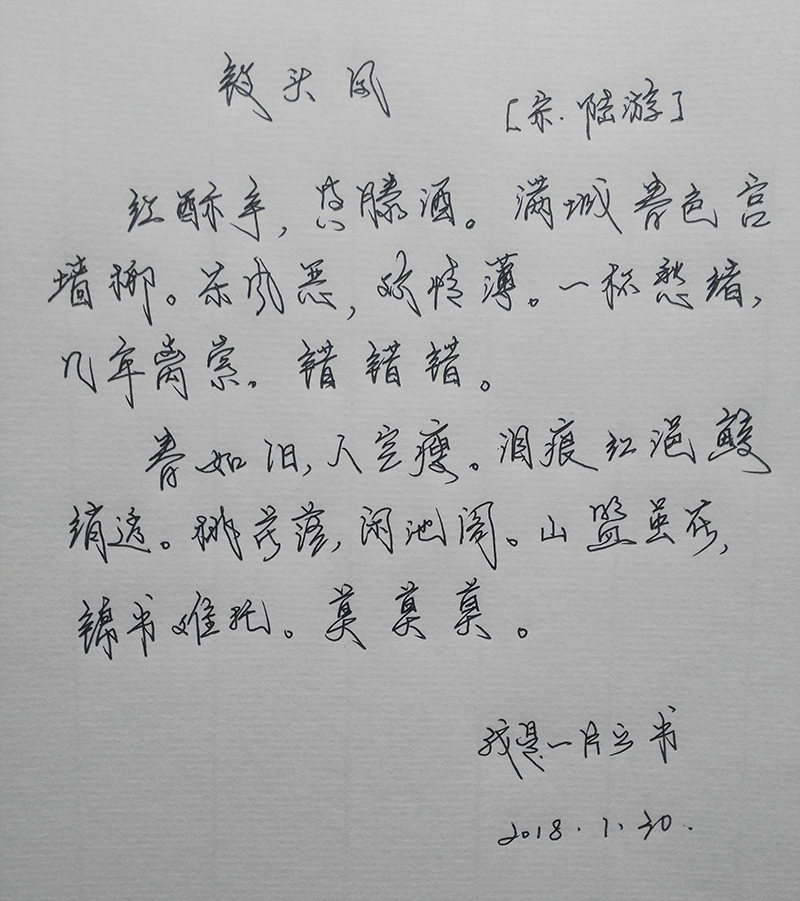 钗头凤
[宋·陆游]
红酥手，黄滕酒。满城春色宫
墙柳。东风恶，欢情薄。一杯愁绪，
几年离索。错错错。
春如旧，人空瘦。泪痕红浥鲛
绡透。桃花落，闲池阁。山盟虽在，
锦书难托。莫莫莫。
我是一片云书
2018.1.30.